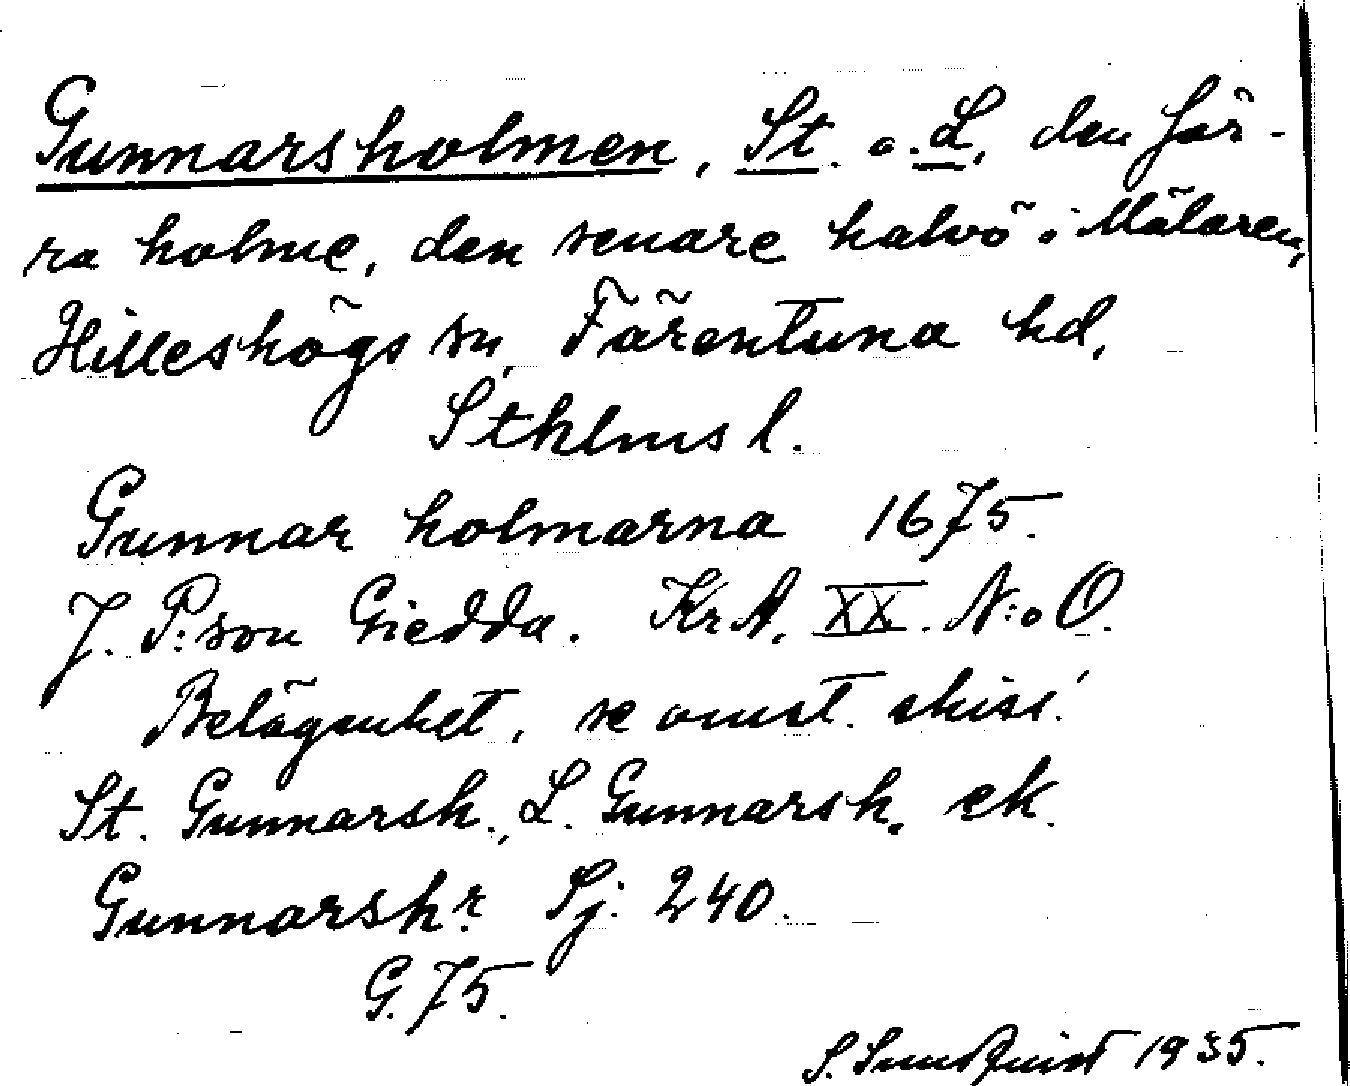 Gunnarsholmen, St. o. L, den för-
ra holme, den senare halvö i Mälaren,
Hilleshögs sn, Färentuna hd,
Sthlms l.
Gunnar holmarna 1675.
J. P:son Giedda. KrA. XX. N:o O.
Belägenhet, se omst. skiss!
St. Gunnarsh., L. Gunnarsh. ek.
Gunnarshr. Sj. 240.
G. 75.
S. Sundquist 1935.